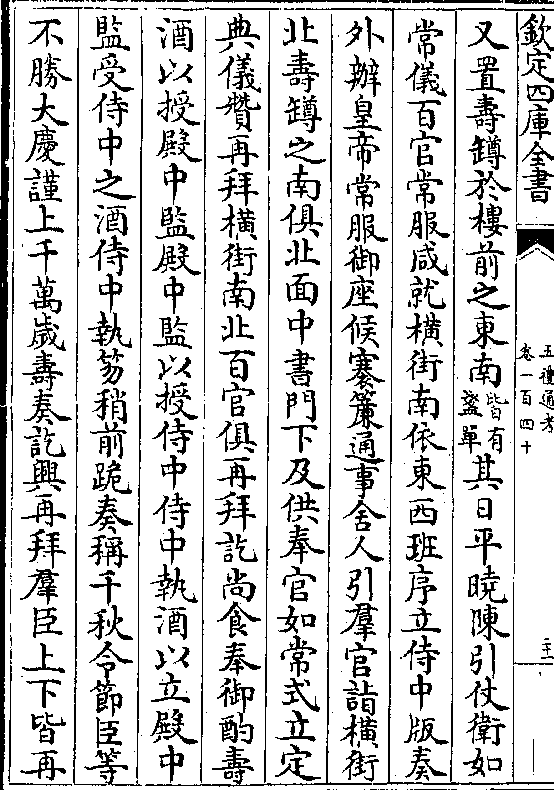 欽定四庫全書
五禮通考
卷一百四十
又置壽罇於樓前之東南皆有壘單其日平曉陳引仗衛如
常儀百官常服咸就橫街南依東西班序立侍中版奏
外辦皇帝常服御座候褰簾通事舍人引羣官詣橫街
北壽罇之南俱北面中書門下及供奉官如常式立定
典儀贊再拜橫街南北百官俱再拜訖尚食奉御酌壽
酒以授殿中監殿中監以授侍中侍中執酒以立殿中
監受侍中之酒侍中執笏稍前跪奏稱千秋令節臣等
不勝大慶謹上千萬歲壽奏訖興再拜羣臣上下皆再